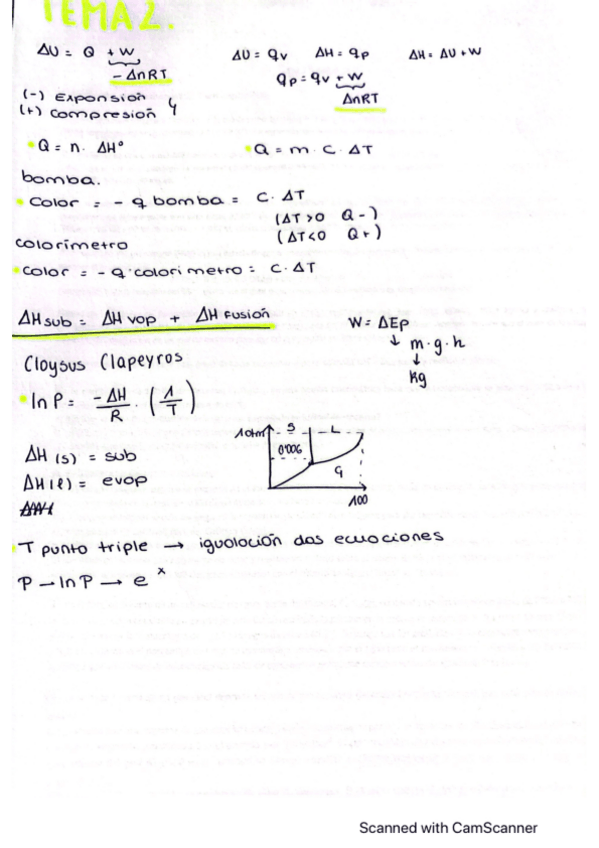 TEMA 2.
ΔU = Q + W    ΔU = qv    ΔH = qp    ΔH = ΔU + W
- ΔnRT    qp = qv + W
ΔnRT
(-) Expansión
(+) compresión
Q = n. ΔH°    Q = m. C. ΔT
bomba.
Calor = - q bomba = C. ΔT
(ΔT>0 Q-)
(ΔT<0 Q+)
calorímetro
calor = - q calorimetro = C. ΔT
ΔHsub = ΔH vap + ΔH Fusión    W = ΔEp
↓ m.g.h
↓
kg
Claysus Clapeyros
ln P = -ΔH/R . (1/T)
1atm S L
0'006
G
100
ΔH (s) = sub
ΔH (l) = evap
T punto triple → igualación das ecuaciones
P → ln P → e^x
Scanned with CamScanner